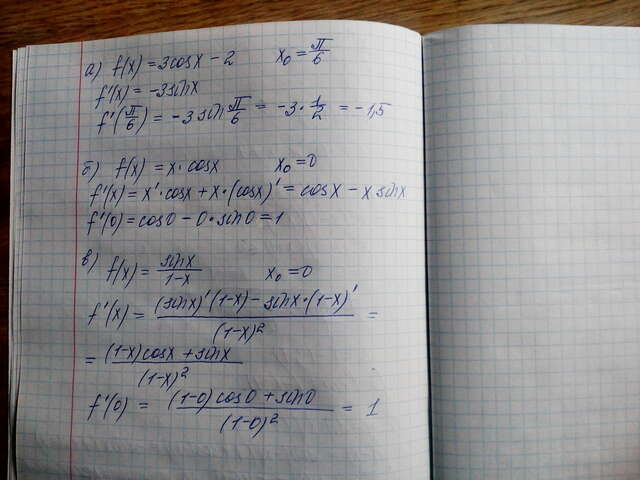 а) f(x) = 3cosx - 2    x₀ = π/6
f'(x) = -3sinx
f'(π/6) = -3 sin π/6 = -3 · 1/2 = -1,5
б) f(x) = x · cosx    x₀ = 0
f'(x) = x' · cosx + x · (cosx)' = cosx - x sinx
f'(0) = cos0 - 0 · sin0 = 1
в) f(x) = sinx/(1-x)    x₀ = 0
f'(x) = ((sinx)'(1-x) - sinx · (1-x)')/(1-x)² =
= ((1-x)cosx + sinx)/(1-x)²
f'(0) = ((1-0)cos0 + sin0)/(1-0)² = 1